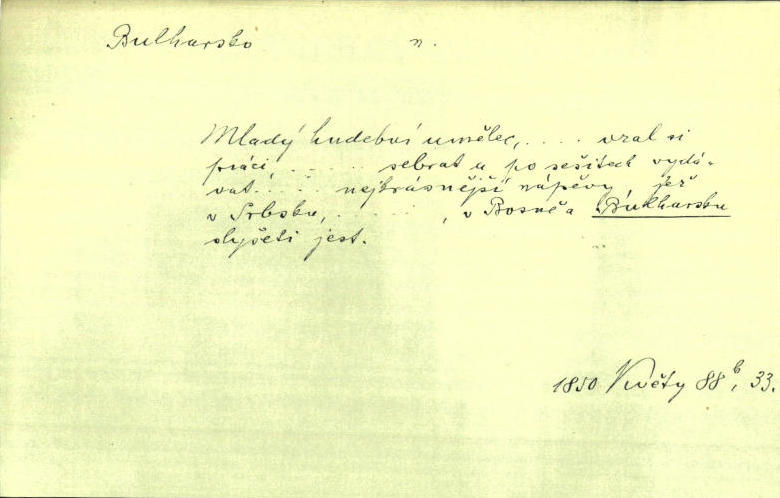 Bulharsko n.
Mladý hudební umělec, . . . . vzal si
práci, . . . . . sebrat a po sešitech vydá-
vat, . . . . nejkrásnější nápěvy, jež
v Srbsku, . . . . . . , v Bosně a Bulharsku
slyšeti jest.
1850 Květy 88b, 33.